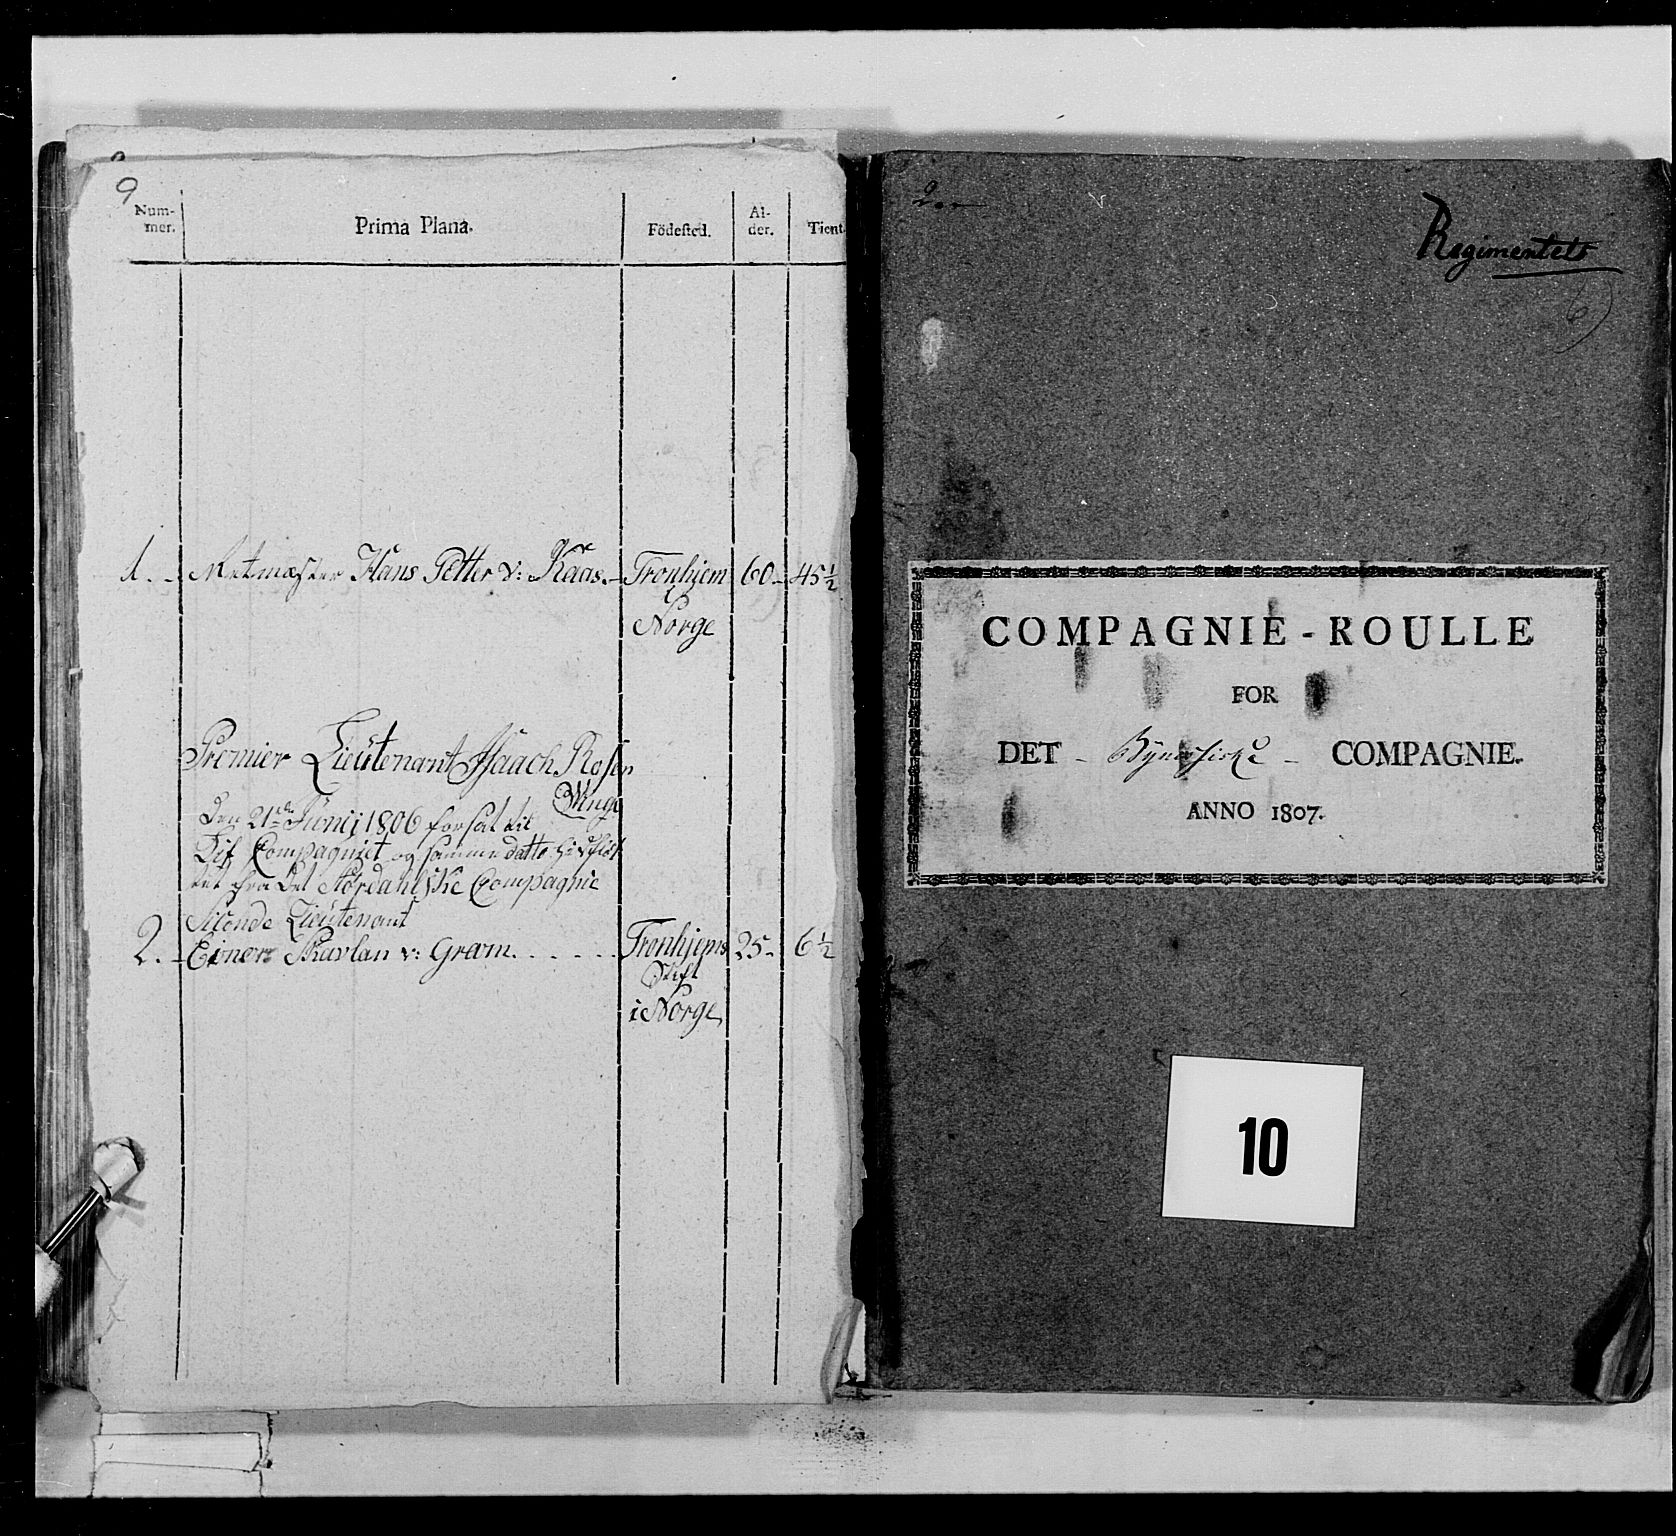 9
Num-
mer.
Prima Plana.
Födested.
Al-
der.
Tient.
1. - Ritmæster Hans Petter v: Kaas. - Tronhjem 60 - 45 1/2
Norge
Premier Lieutenant Isaach Rosen
Vinge
Den 21de Junij 1806 forsat til
Lif Compagniet og samme datto hidflöt
tet fra det Nordahlske Compagnie
Secende Lieutenant
2. - Einer Skavlan v: Gram. . . . . . Tronhjems 25 - 6 1/2
Stift
i Norge
Regimentets
6
COMPAGNIE - ROULLE
FOR
DET - Bynæsiske - COMPAGNIE.
ANNO 1807.
10